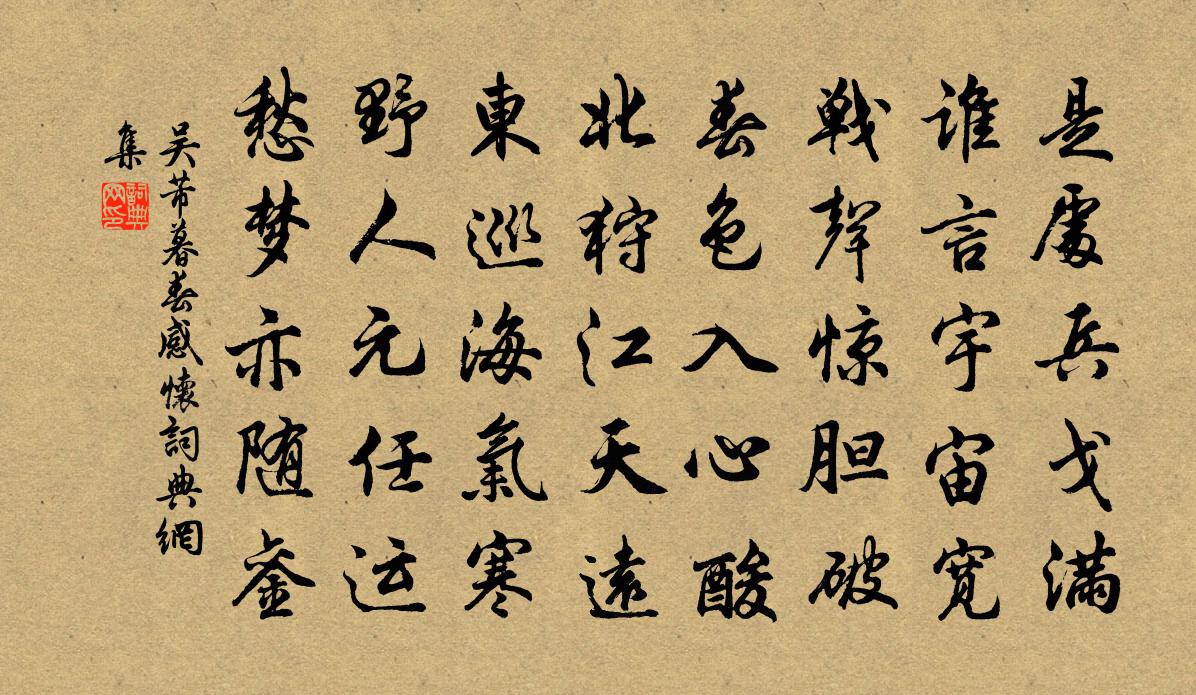 是處兵戈满
谁言宇宙寛
戦聲惊胆破
春色入心酸
北狩江天遠
東巡海氣寒
野人元任运
愁梦亦随銮
吴芾暮春感懷詞典網
集
詞典网印